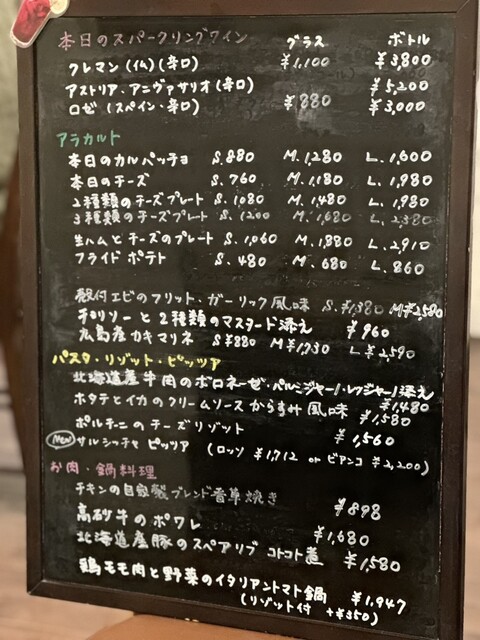 本日のスパークリングワイン グラス ボトル
クレマン(仏)(辛口) ¥1,100 ¥3,800
アストリア・アニヴァサリオ(辛口) ¥5,200
ロゼ(スペイン・辛口) ¥880 ¥3,000
アラカルト
本日のカルパッチョ S.880 M.1,280 L.1,600
本日のチーズ S.760 M.1,180 L.1,980
2種類のチーズプレート S.1,080 M.1,480 L.1,980
3種類のチーズプレート S.1200 M.1,680 L.2,380
生ハムとチーズのプレート S.1,060 M.1,880 L.2,910
フライドポテト S.480 M.680 L.860
殻付エビのフリット・ガーリック風味 S.¥1,380 M¥2,580
チョリソーと2種類のマスタード添え ¥960
広島産カキマリネ S¥880 M¥1,730 L¥2,590
パスタ・リゾット・ピッツァ
北海道産牛肉のボロネーゼ・パルミジャーノ・レッジャーノ添え ¥1,480
ホタテとイカのクリームソースからすみ風味 ¥1,580
ポルチーニのチーズリゾット ¥1,560
New サルシッチャ ピッツァ (ロッソ ¥1,712 or ビアンコ ¥2,200)
お肉・鍋料理
チキンの自家製ブレンド香草焼き ¥898
高砂牛のポワレ ¥1,680
北海道産豚のスペアリブ コトコト煮 ¥1,580
鶏モモ肉と野菜のイタリアントマト鍋 ¥1,947
(リゾット付 +¥350)